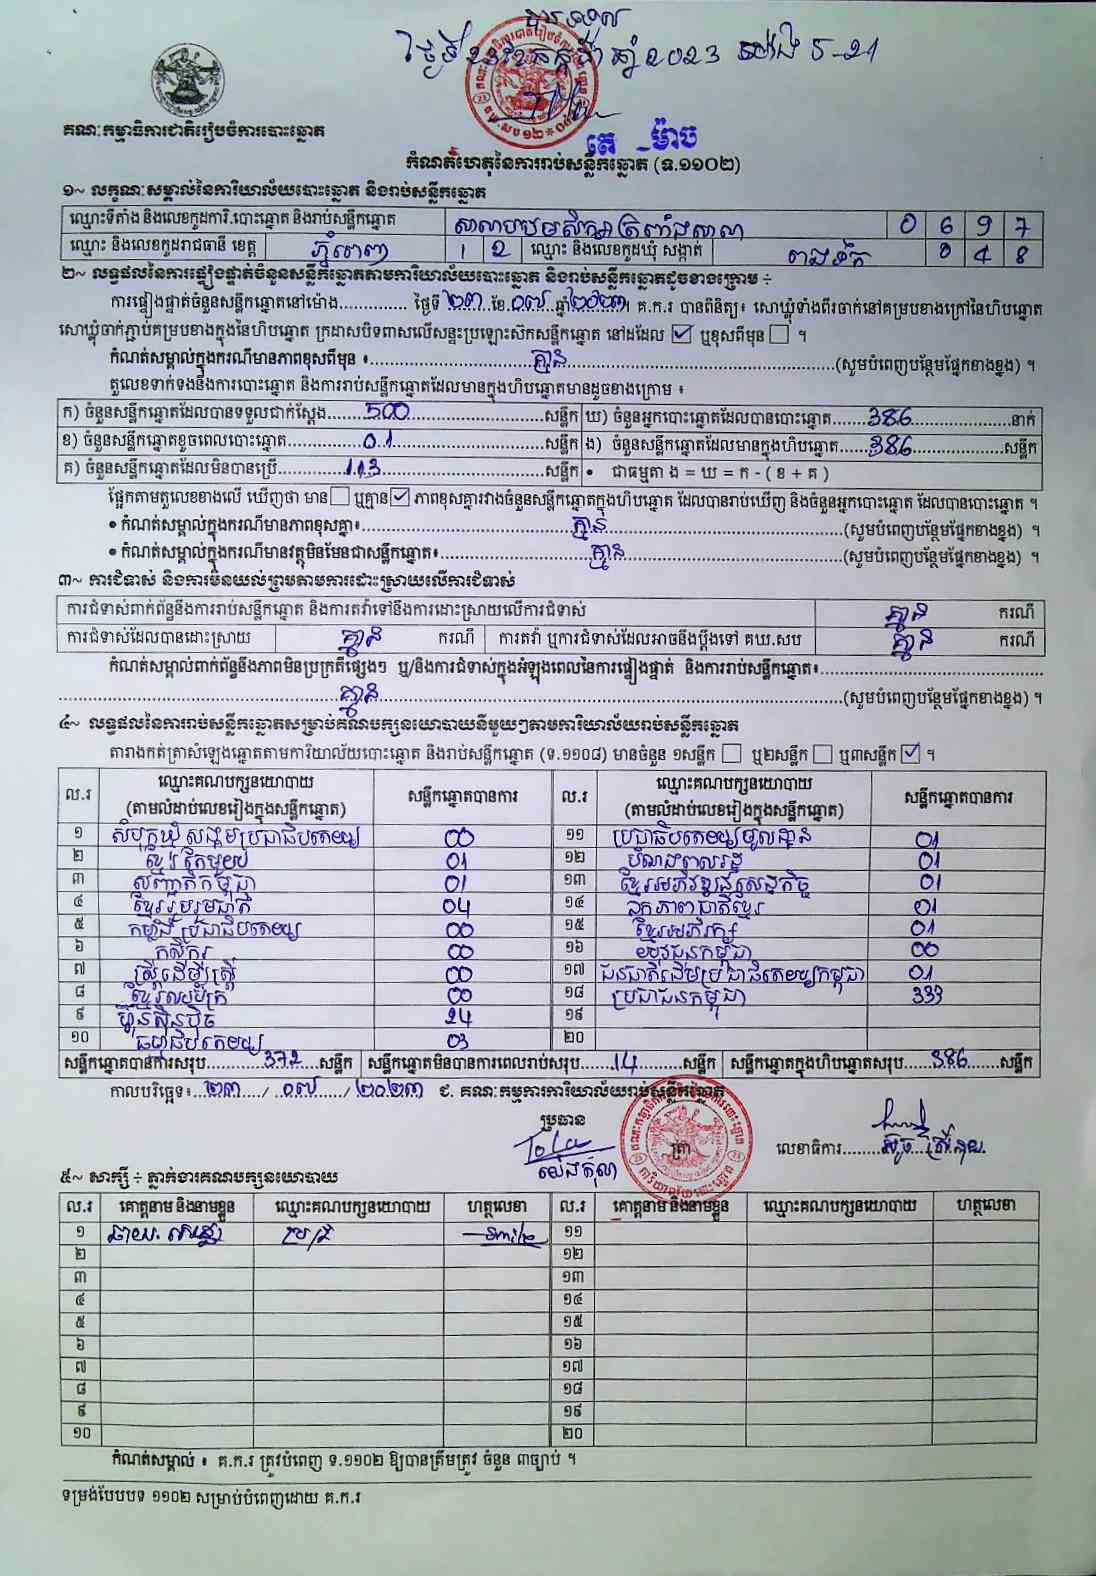 ថ្ងៃទី23 ខែកក្កដា ឆ្នាំ2023 ម៉ោង 5-21
គណៈកម្មាធិការជាតិរៀបចំការបោះឆ្នោត
តេ ម៉ាច
កំណត់ហេតុនៃការរាប់សន្លឹកឆ្នោត (ទ.១១០២)
១~ លក្ខណៈសម្គាល់នៃការិយាល័យបោះឆ្នោត និងរាប់សន្លឹកឆ្នោត
ឈ្មោះទីតាំង និងលេខកូដការិ.បោះឆ្នោត និងរាប់សន្លឹកឆ្នោត សាលាបឋមសិក្សាត្រពាំងសាលា 0 6 9 7
ឈ្មោះ និងលេខកូដរាជធានី ខេត្ត ភ្នំពេញ 1 2 ឈ្មោះ និងលេខកូដឃុំ សង្កាត់ ពងទឹក 0 4 8
២~ លទ្ធផលនៃការផ្ទៀងផ្ទាត់ចំនួនសន្លឹកឆ្នោតតាមការិយាល័យបោះឆ្នោត និងរាប់សន្លឹកឆ្នោតដូចខាងក្រោម ÷
ការផ្ទៀងផ្ទាត់ចំនួនសន្លឹកឆ្នោតនៅម៉ោង............ ថ្ងៃទី ២៣ ខែ ០៧ ឆ្នាំ ២០២៣ ។ គ.ក.រ បានពិនិត្យ៖ សោឃ្លុំទាំងពីរចាក់នៅគម្របខាងក្រៅនៃហិបឆ្នោត
សោឃ្លុំចាក់ភ្ជាប់គម្របខាងក្នុងនៃហិបឆ្នោត ក្រដាសបិទពាសលើសន្ទះប្រឡោះស៊កសន្លឹកឆ្នោត នៅដដែល ☑ ឬខុសពីមុន ☐ ។
កំណត់សម្គាល់ក្នុងករណីមានភាពខុសពីមុន ៖ គ្មាន (សូមបំពេញបន្ថែមផ្នែកខាងខ្នង) ។
តួលេខទាក់ទងនឹងការបោះឆ្នោត និងការរាប់សន្លឹកឆ្នោតដែលមានក្នុងហិបឆ្នោតមានដូចខាងក្រោម ៖
ក) ចំនួនសន្លឹកឆ្នោតដែលបានទទួលជាក់ស្តែង 500 សន្លឹក ឃ) ចំនួនអ្នកបោះឆ្នោតដែលបានបោះឆ្នោត 386 នាក់
ខ) ចំនួនសន្លឹកឆ្នោតខូចពេលបោះឆ្នោត 01 សន្លឹក ង) ចំនួនសន្លឹកឆ្នោតដែលមានក្នុងហិបឆ្នោត 386 សន្លឹក
គ) ចំនួនសន្លឹកឆ្នោតដែលមិនបានប្រើ 113 សន្លឹក • ជាធម្មតា ង = ឃ = ក - ( ខ + គ )
ផ្អែកតាមតួលេខខាងលើ ឃើញថា មាន ☐ ឬគ្មាន ☑ ភាពខុសគ្នារវាងចំនួនសន្លឹកឆ្នោតក្នុងហិបឆ្នោត ដែលបានរាប់ឃើញ និងចំនួនអ្នកបោះឆ្នោត ដែលបានបោះឆ្នោត ។
• កំណត់សម្គាល់ក្នុងករណីមានភាពខុសគ្នា៖ គ្មាន (សូមបំពេញបន្ថែមផ្នែកខាងខ្នង) ។
• កំណត់សម្គាល់ក្នុងករណីមានវត្ថុមិនមែនជាសន្លឹកឆ្នោត៖ គ្មាន (សូមបំពេញបន្ថែមផ្នែកខាងខ្នង) ។
៣~ ការជំទាស់ និងការមិនយល់ព្រមតាមការដោះស្រាយលើការជំទាស់
ការជំទាស់ពាក់ព័ន្ធនឹងការរាប់សន្លឹកឆ្នោត និងការតវ៉ាទៅនឹងការដោះស្រាយលើការជំទាស់ គ្មាន ករណី
ការជំទាស់ដែលបានដោះស្រាយ គ្មាន ករណី ការតវ៉ា ឬការជំទាស់ដែលអាចនឹងប្តឹងទៅ គឃ.សប គ្មាន ករណី
កំណត់សម្គាល់ពាក់ព័ន្ធនឹងភាពមិនប្រក្រតីផ្សេងៗ ឬ/និងការជំទាស់ក្នុងអំឡុងពេលនៃការផ្ទៀងផ្ទាត់ និងការរាប់សន្លឹកឆ្នោត៖
គ្មាន (សូមបំពេញបន្ថែមផ្នែកខាងខ្នង) ។
៤~ លទ្ធផលនៃការរាប់សន្លឹកឆ្នោតសម្រាប់គណបក្សនយោបាយនីមួយៗតាមការិយាល័យរាប់សន្លឹកឆ្នោត
តារាងកត់ត្រាសំឡេងឆ្នោតតាមការិយាល័យបោះឆ្នោត និងរាប់សន្លឹកឆ្នោត (ទ.១១០៨) មានចំនួន ១សន្លឹក ☐ ឬ២សន្លឹក ☐ ឬ៣សន្លឹក ☑ ។
ល.រ ឈ្មោះគណបក្សនយោបាយ (តាមលំដាប់លេខរៀងក្នុងសន្លឹកឆ្នោត) សន្លឹកឆ្នោតបានការ ល.រ ឈ្មោះគណបក្សនយោបាយ (តាមលំដាប់លេខរៀងក្នុងសន្លឹកឆ្នោត) សន្លឹកឆ្នោតបានការ
១ សំបុកឃ្មុំសង្គមប្រជាធិបតេយ្យ 00 ១១ ប្រជាធិបតេយ្យមូលដ្ឋាន 01
២ ខ្មែរតែមួយ 01 ១២ បំណងពលរដ្ឋ 01
៣ សញ្ជាតិកម្ពុជា 01 ១៣ ខ្មែរអភិវឌ្ឍន៍សេដ្ឋកិច្ច 01
៤ ខ្មែររួបរួមជាតិ 04 ១៤ ឯកភាពជាតិខ្មែរ 01
៥ កម្លាំងប្រជាធិបតេយ្យ 00 ១៥ ខ្មែរអភិរក្ស 01
៦ កសិករ 00 ១៦ យុវជនកម្ពុជា 00
៧ ស្ត្រីដើម្បីស្ត្រី 00 ១៧ ជនជាតិដើមប្រជាធិបតេយ្យកម្ពុជា 01
៨ ខ្មែរឈប់ក្រ 00 ១៨ ប្រជាជនកម្ពុជា 333
៩ ហ៊្វុនស៊ិនប៉ិច 24 ១៩
១០ ធម្មាធិបតេយ្យ 03 ២០
សន្លឹកឆ្នោតបានការសរុប 372 សន្លឹក សន្លឹកឆ្នោតមិនបានការពេលរាប់សរុប 14 សន្លឹក សន្លឹកឆ្នោតក្នុងហិបឆ្នោតសរុប 386 សន្លឹក
កាលបរិច្ឆេទ៖ ២៣ / ០៧ / ២០២៣ ៩. គណៈកម្មការការិយាល័យរាប់សន្លឹកឆ្នោត
ប្រធាន ត្រា លេខាធិការ
Tola
៥~ សាក្សី ÷ ភ្នាក់ងារគណបក្សនយោបាយ
ល.រ គោត្តនាម និងនាមខ្លួន ឈ្មោះគណបក្សនយោបាយ ហត្ថលេខា ល.រ គោត្តនាម និងនាមខ្លួន ឈ្មោះគណបក្សនយោបាយ ហត្ថលេខា
១ ១១
២ ១២
៣ ១៣
៤ ១៤
៥ ១៥
៦ ១៦
៧ ១៧
៨ ១៨
៩ ១៩
១០ ២០
កំណត់សម្គាល់ ៖ គ.ក.រ ត្រូវបំពេញ ទ.១១០២ ឱ្យបានត្រឹមត្រូវ ចំនួន ៣ច្បាប់ ។
ទម្រង់បែបបទ ១១០២ សម្រាប់បំពេញដោយ គ.ក.រ